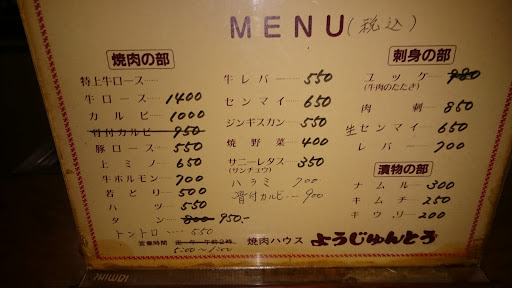 MENU(税込)
焼肉の部
特上牛ロース……
牛ロース…1400
カルビ……1000
骨付カルビ…950
豚ロース……550
上ミノ……650
牛ホルモン……700
若どり……500
ハツ……550
タン……800 950-
トントロ…550
営業時間 午前2時
5:00~1:00
牛レバー……550
センマイ……650
ジンギスカン……550
焼野菜……400
サニーレタス……350
(サンチュウ)
ハラミ 700
骨付カルビー900
刺身の部
ユッケ……980
(牛肉のたたき)
肉刺……850
生センマイ……650
レバー……700
漬物の部
ナムル……300
キムチ……250
キウリ……200
焼肉ハウス ようじゅんとう